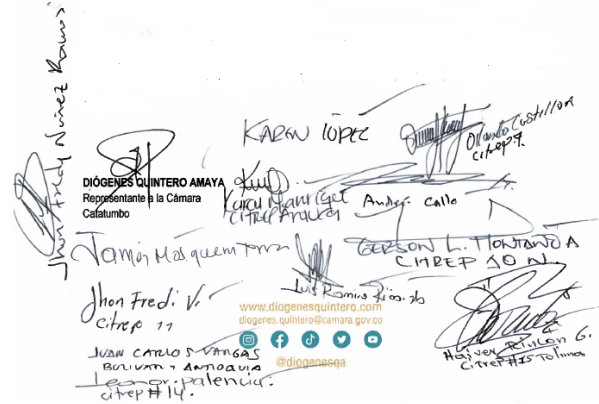 Jhon Fredy Núñez Ramos
KAREN LÓPEZ
Orlando Castillo A
Citrep 9.
DIÓGENES QUINTERO AMAYA
Representante a la Cámara
Catatumbo
Karen Manrique
CITREP Arauca
Andrés Callo
GERSON L. MONTAÑO A
CITREP 10 N.
Luis Ramiro
Jhon Fredi V.
Citrep 11
www.diogenesquintero.com
diogenes.quintero@camara.gov.co
@diogenesqa
JUAN CARLOS VARGAS
BOLIVAR y ANTIOQUIA
Leonor palencia.
citrep #14.
Haiver Rincon G.
Citrep #15 Tolima